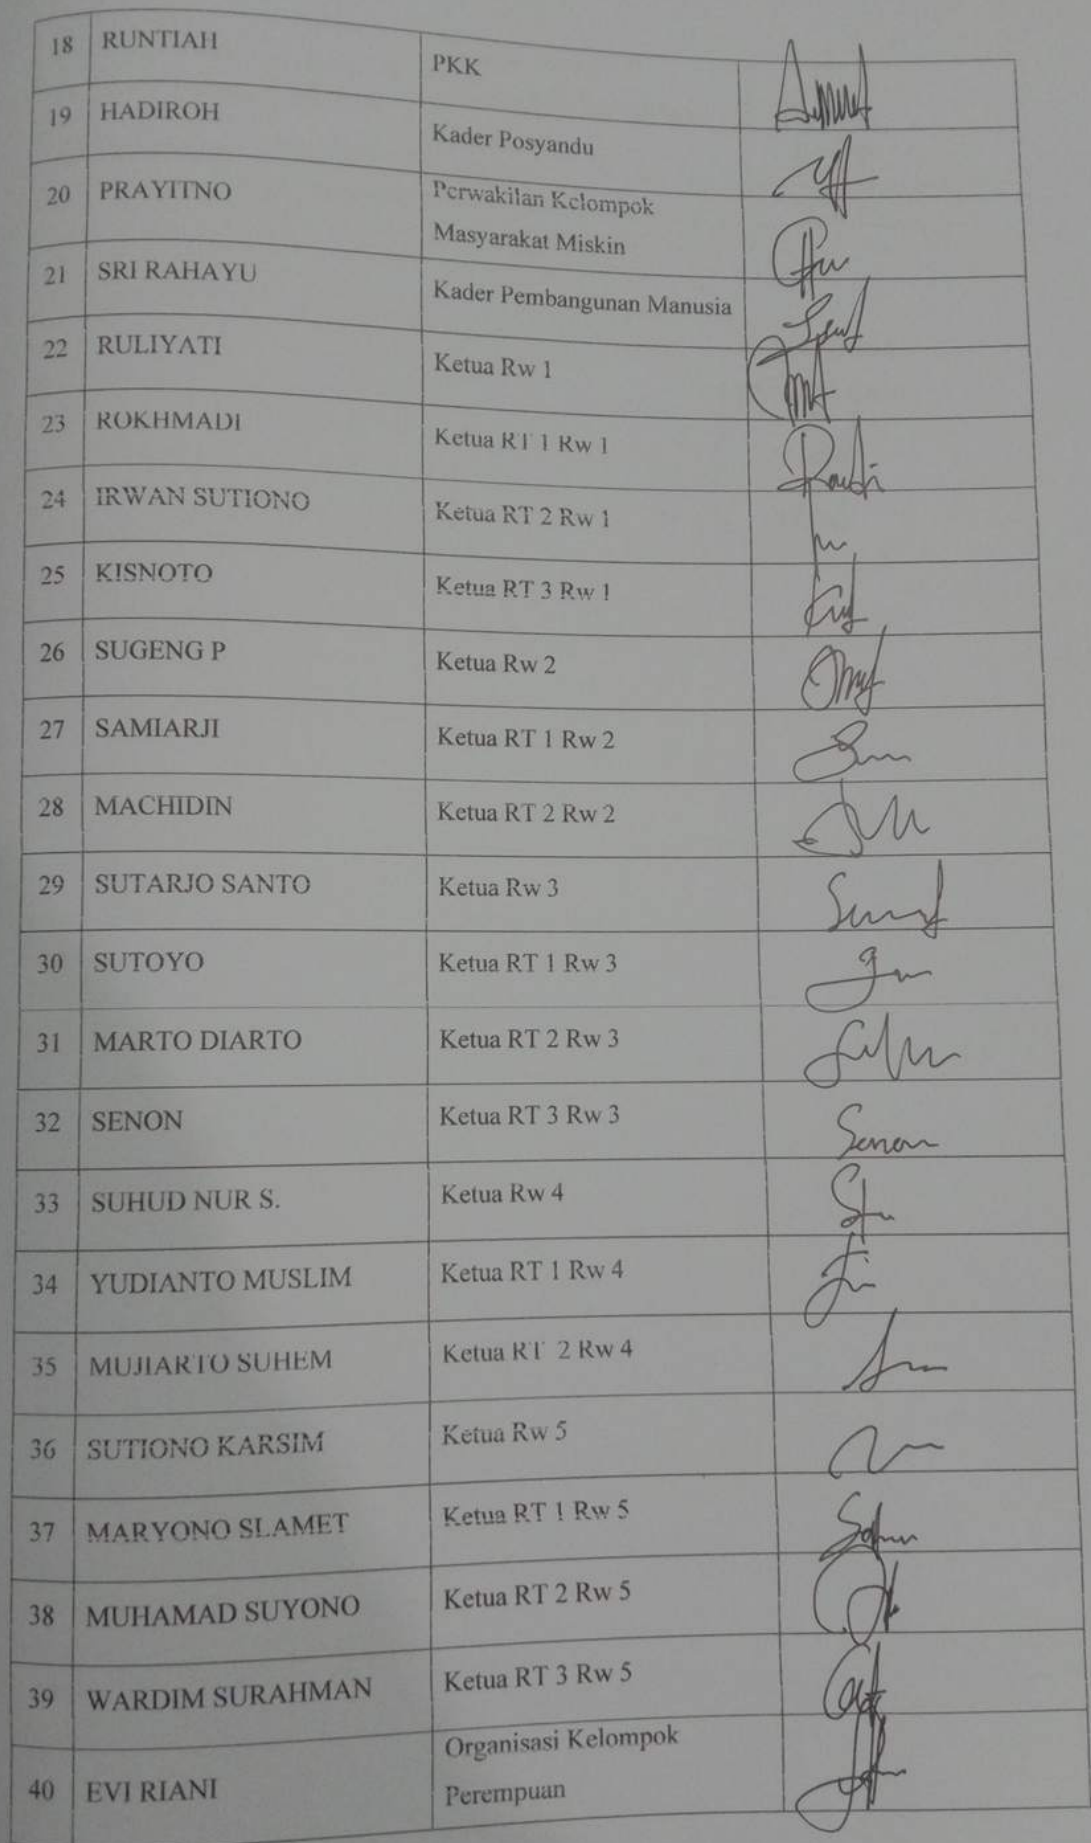 18 RUNTIAH PKK
19 HADIROH Kader Posyandu
20 PRAYITNO Perwakilan Kelompok
Masyarakat Miskin
21 SRI RAHAYU Kader Pembangunan Manusia
22 RULIYATI Ketua Rw 1
23 ROKHMADI Ketua RT 1 Rw 1
24 IRWAN SUTIONO Ketua RT 2 Rw 1
25 KISNOTO Ketua RT 3 Rw 1
26 SUGENG P Ketua Rw 2
27 SAMIARJI Ketua RT 1 Rw 2
28 MACHIDIN Ketua RT 2 Rw 2
29 SUTARJO SANTO Ketua Rw 3
30 SUTOYO Ketua RT 1 Rw 3
31 MARTO DIARTO Ketua RT 2 Rw 3
32 SENON Ketua RT 3 Rw 3 Senon
33 SUHUD NUR S. Ketua Rw 4
34 YUDIANTO MUSLIM Ketua RT 1 Rw 4
35 MUJIARTO SUHEM Ketua RT 2 Rw 4
36 SUTIONO KARSIM Ketua Rw 5
37 MARYONO SLAMET Ketua RT 1 Rw 5
38 MUHAMAD SUYONO Ketua RT 2 Rw 5
39 WARDIM SURAHMAN Ketua RT 3 Rw 5
40 EVI RIANI Organisasi Kelompok
Perempuan